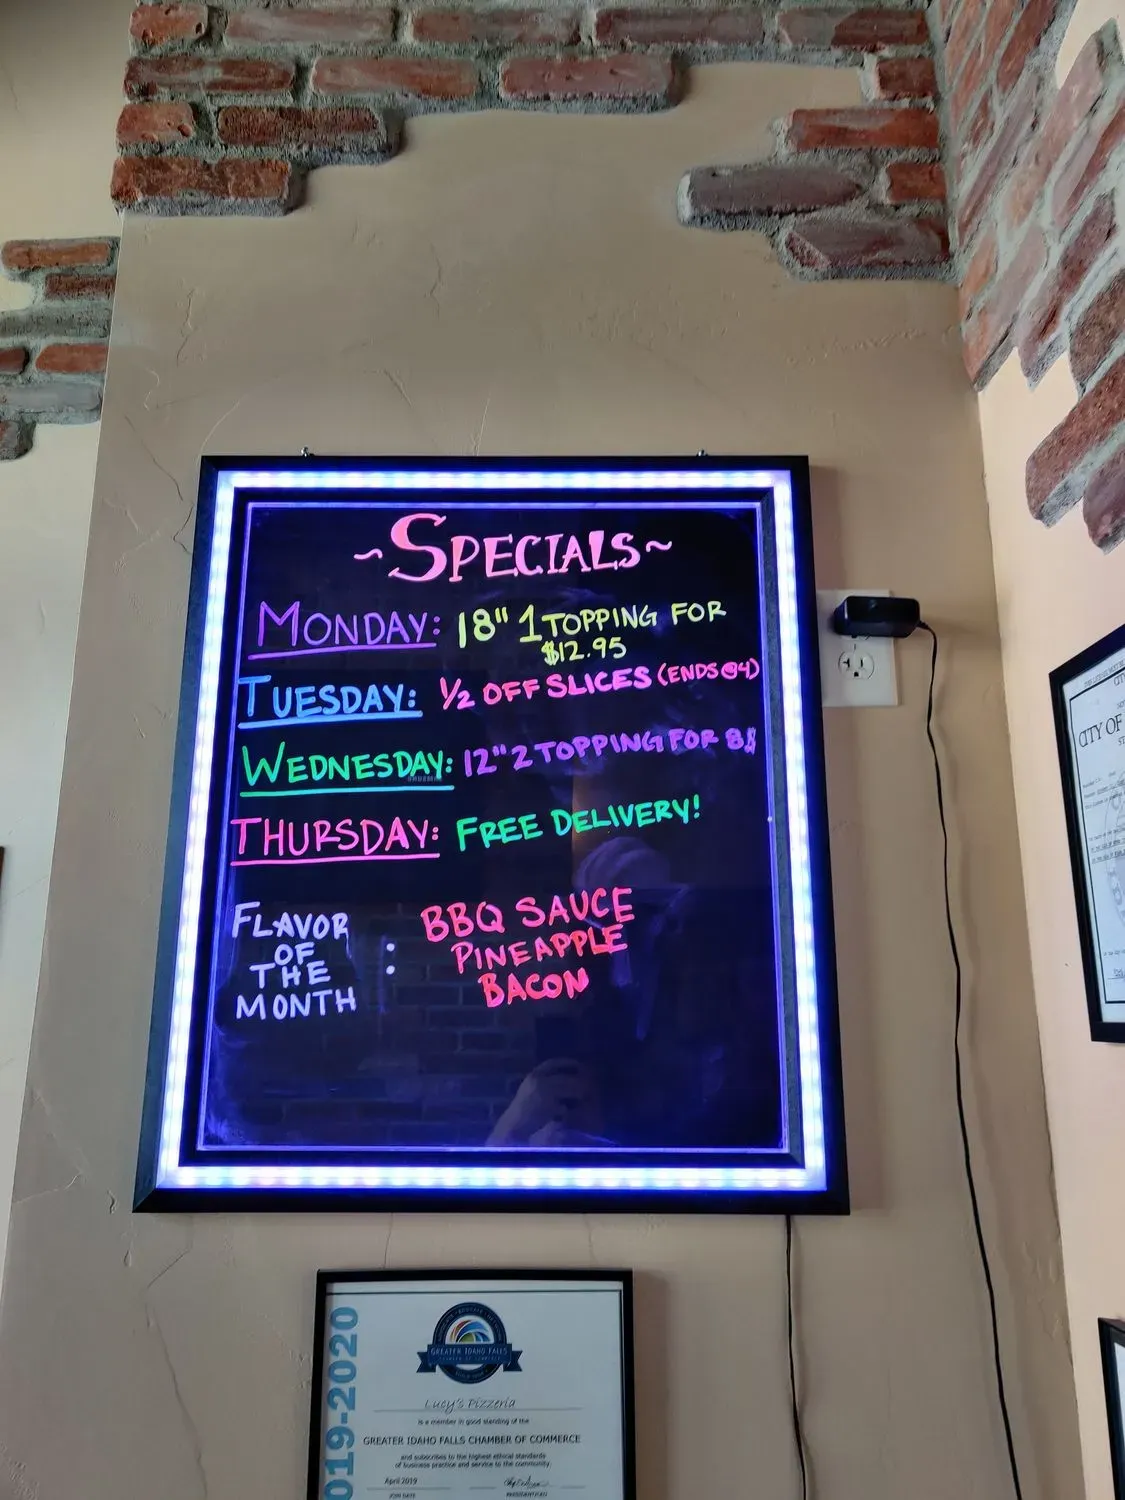 ~SPECIALS~
MONDAY: 18" 1 TOPPING FOR
$12.95
TUESDAY: 1/2 OFF SLICES (ENDS @4)
WEDNESDAY: 12" 2 TOPPING FOR 8$
THURSDAY: FREE DELIVERY!
FLAVOR OF THE MONTH :
BBQ SAUCE
PINEAPPLE
BACON
019-2020
GREATER IDAHO FALLS
CHAMBER OF COMMERCE
Lucy's Pizzeria
is a member in good standing of the
GREATER IDAHO FALLS CHAMBER OF COMMERCE
and subscribes to the highest ethical standards
of business practice and service to the community.
April 2019
JOIN DATE
CITY OF